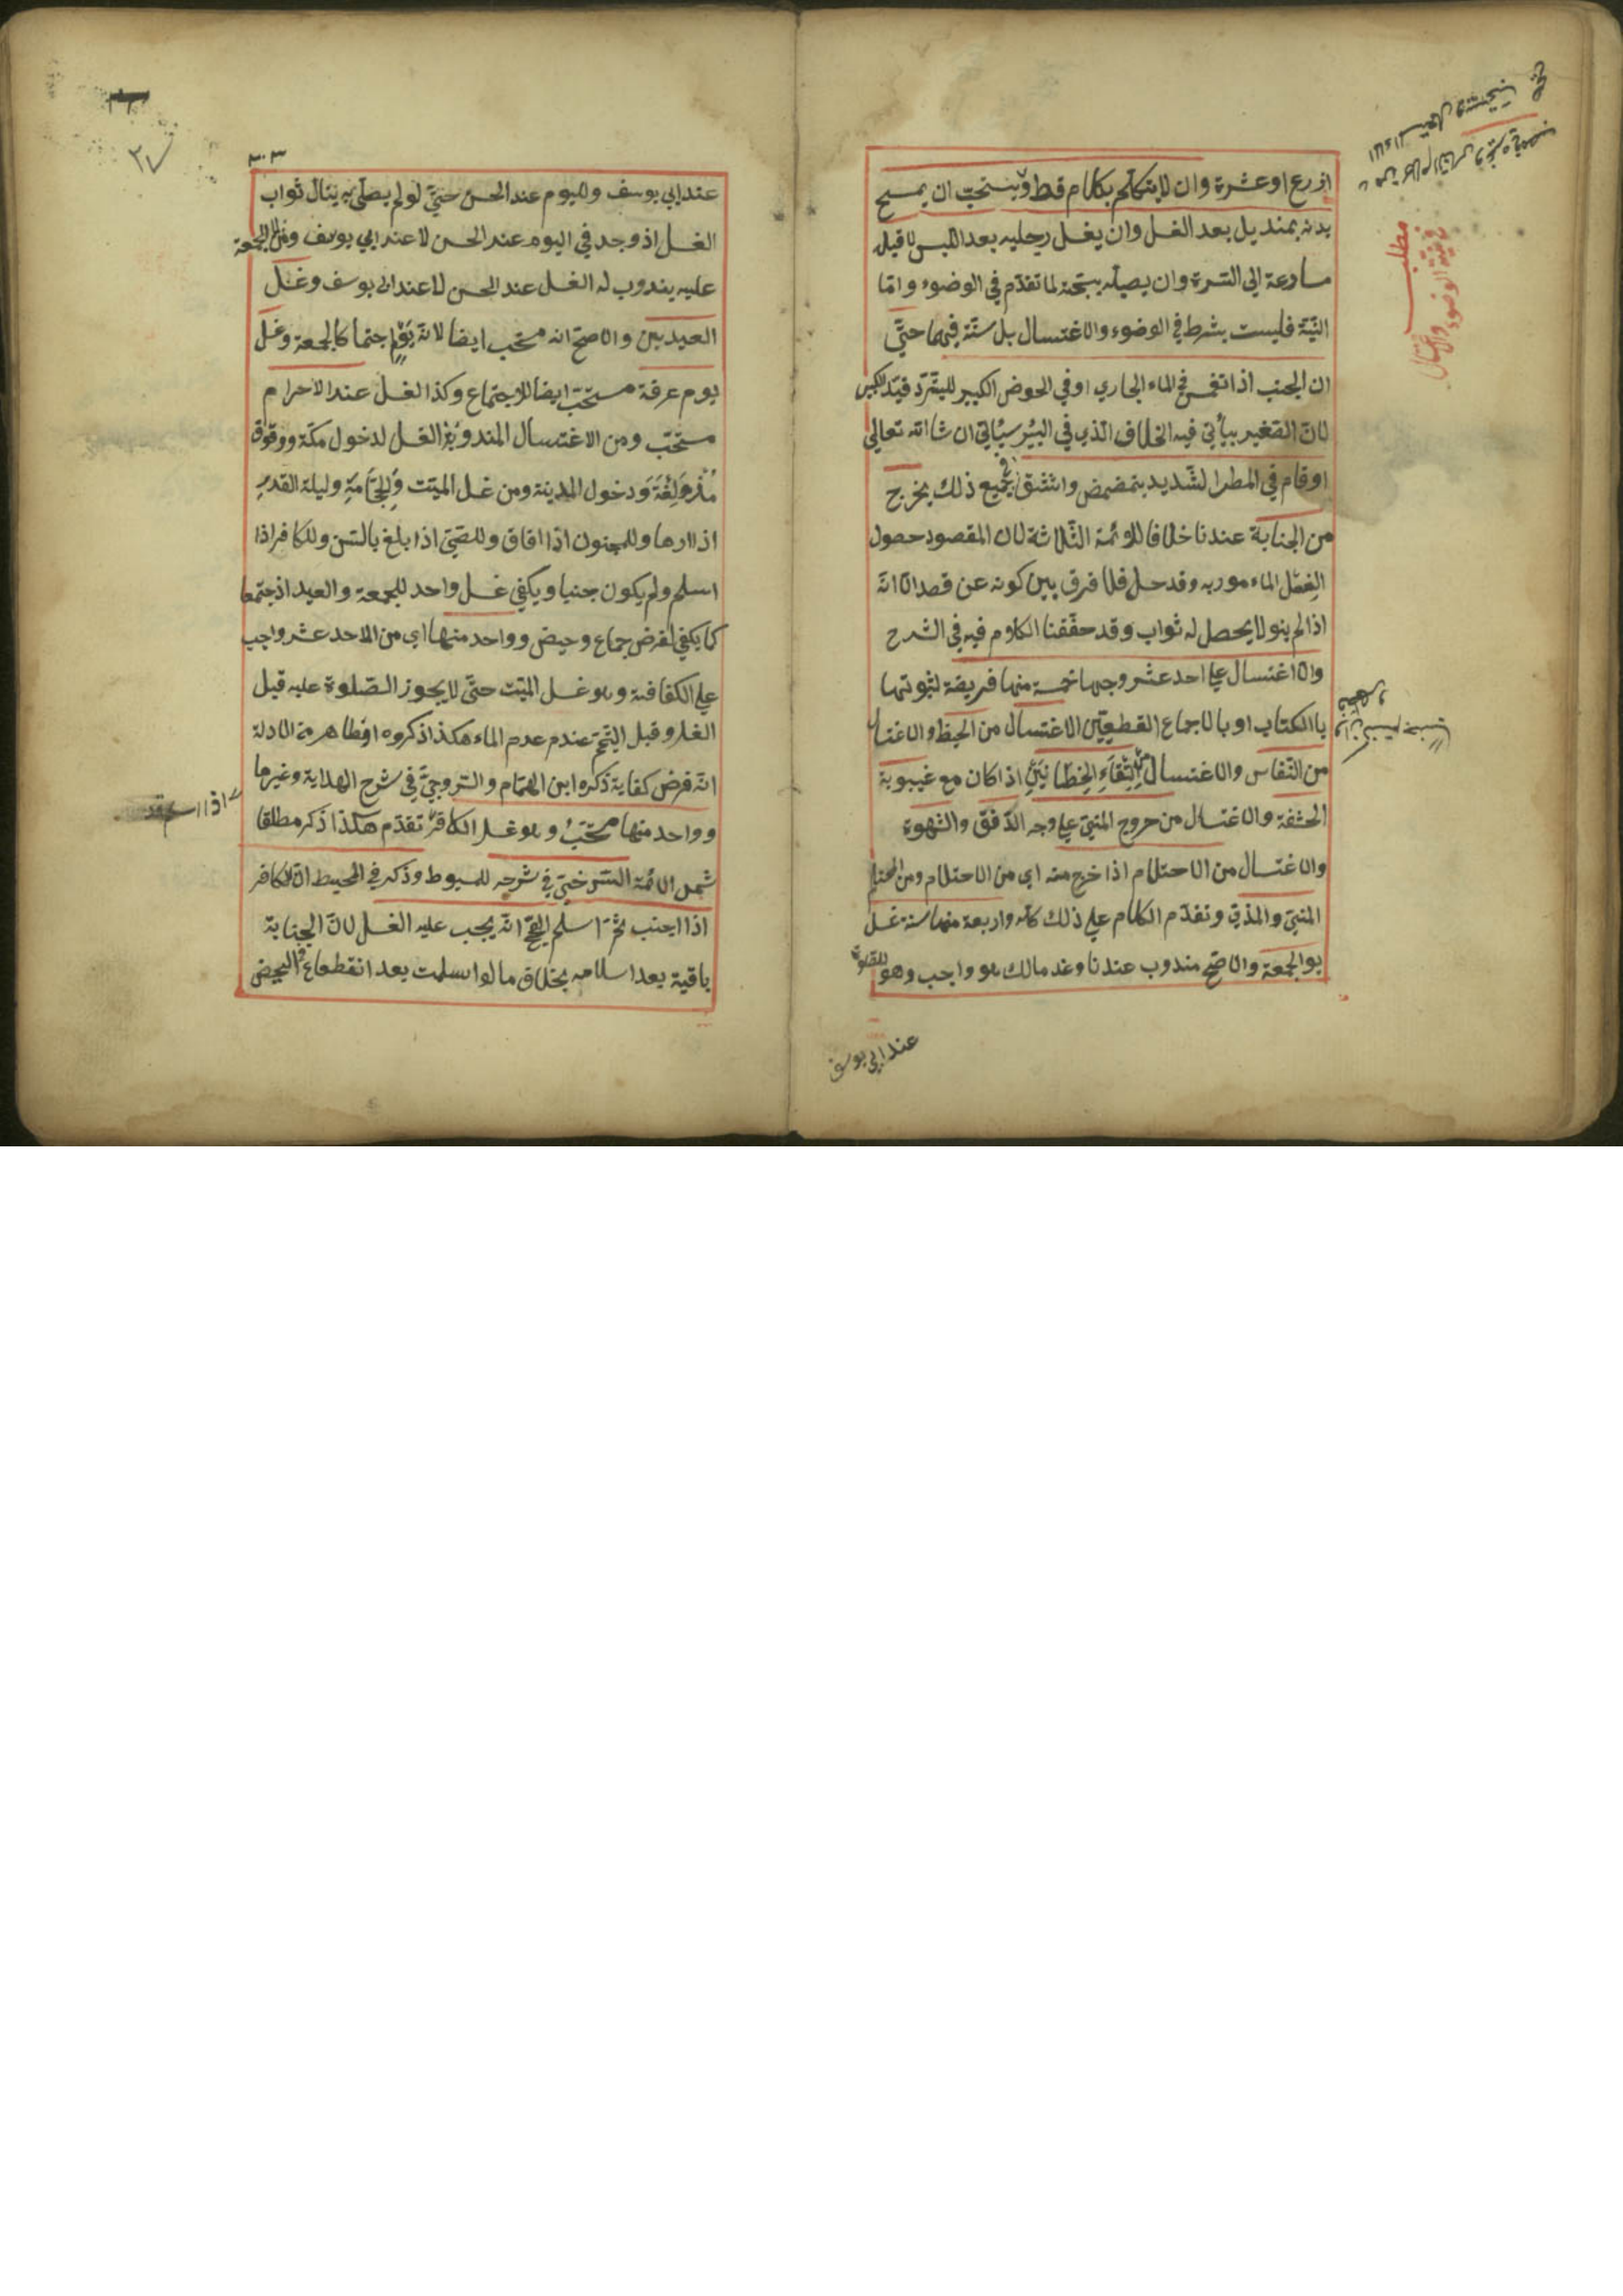 اذرع او عشرة وان لا يتكلم بكلام قط ويستحب ان يمسح
بدنه بمنديل بعد الغسل وان يغسل رجليه بعد اللبس لا قبله
مسارعة الى السترة وان يصليه بسبحة لما تقدم في الوضوء واما
النية فليست بشرط في الوضوء والاغتسال بل سنة فيهما حتى
ان الجنب اذا انغمس في الماء الجاري او في الحوض الكبير للتبرد قيد بالكبير
لان الصغير يأتي فيه الخلاف الذي في البئر سيأتي ان شا الله تعالى
او قام في المطر الشديد بتمضمض واستنشق في جميع ذلك يخرج
من الجنابة عندنا خلافا للائمة الثلاثة لان المقصود حصول
الماء مور به وقد حصل فلا فرق بين كونه عن قصد الا انه
اذا لم ينو لا يحصل له ثواب وقد حققنا الكلام فيه في الشرح
والاغتسال على احد عشر وجها خمسة منها فريضة لثبوتها
باالكتاب او بالاجماع القطعيين الاغتسال من الحيظ والاغتسال
من النفاس والاغتسال من التقاء الخطانين اذا كان مع غيبوبة
الحشفة والاغتسال من خروج المني على وجه الدفق والشهوة
والاغتسال من الاحتلام اذا خرج منه اي من الاحتلام ومن المحتلم
المني والمذي وتقدم الكلام على ذلك كله واربعة منها سنة غسل
يو الجمعة والاصح مندوب عندنا وعند مالك هو واجب وهو للصلوة
عند ابي يوسف
مطلب
في نية الوضوء
والاغتسال
وان كنتم جنبا
فاطهروا
٣٠٣
٢٧
عند ابي يوسف ولليوم عند الحسن حتى لو لم يصلى به ينال ثواب
الغسل اذ وجد في اليوم عند الحسن لا عند ابي يوسف ومن لا جمعة
عليه يندوب له الغسل عند الحسن لا عند ابي يوسف وغسل
العيدين والاصح انه مستحب ايضا لانه يوم اجتما كالجمعة وغسل
يوم عرفة مستحب ايضا للاجتماع وكذا الغسل عند الاحرام
مستحب ومن الاغتسال المندوبة الغسل لدخول مكة ووقوف
مزدلفة ودخول المدينة ومن غسل الميت وللحجامة وليلة القدر
اذ اارها وللمجنون اذا افاق وللصبي اذا بلغ بالسن وللكافر اذا
اسلم ولم يكون جنبا ويكفي غسل واحد للجمعة والعيد اذ جتمعا
كما يكفي لفرض جماع وحيض وواحد منها اي من الاحد عشر واجب
على الكفافية وهو غسل الميت حتى لا يجوز الصلوة عليه قبل
الغسل وقبل التيمم عندم عدم الماء هكذا ذكروه اوظاهر من الادلة
انه فرض كفاية ذكره ابن الهمام والسروجي في شرح الهداية وغيرما
وواحد منها مستحب وهو غسل الكافر تقدم هكذا ذكر مطلقا
اذا اسلم
شمس الائمة السرخسي في شرحه للمبسوط وذكر في المحيط ان الكافر
اذا اجنب ثم اسلم الصحيح انه يجب عليه الغسل لان الجنابة
باقية بعد اسلامه بخلاف ما لو اسلمت بعد انقطاع الحيض